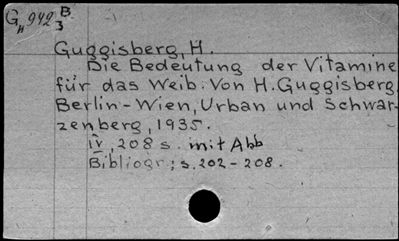 G H 942 B 3
Guggisberg, H.
Die Bedeutung der Vitamine
für das Weib. Von H. Guggisberg,
Berlin-Wien, Urban und Schwar-
zenberg, 1935.
IV, 208 s. mit Abb
Bibliogr.; s. 202-208.